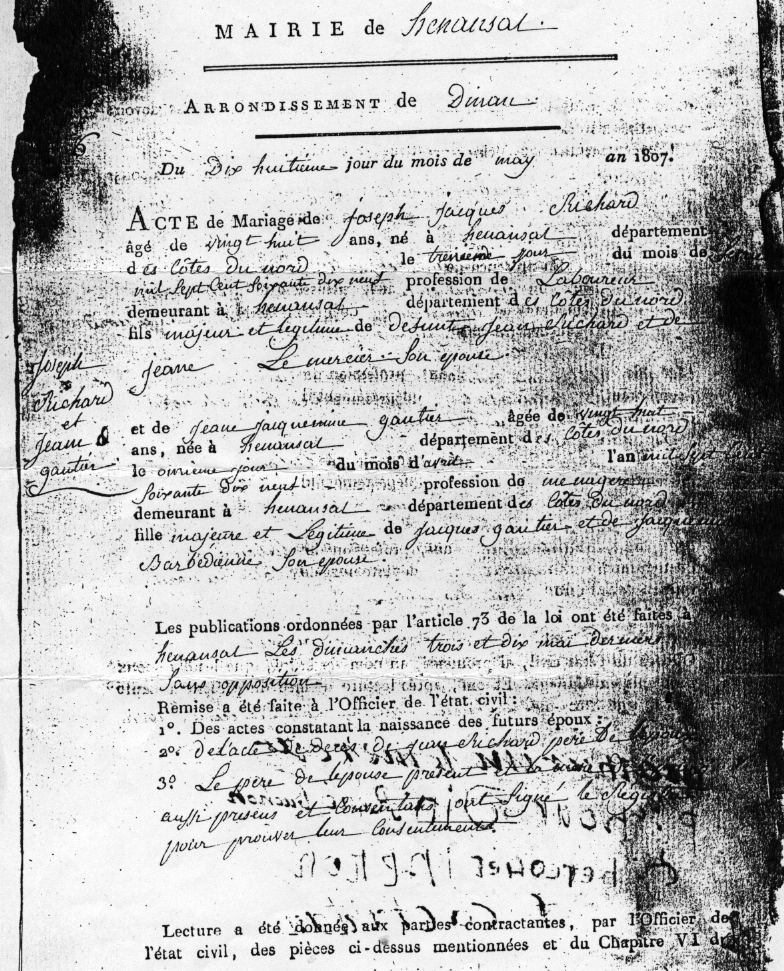 MAIRIE de henansal.
ARRONDISSEMENT de Dinan
Du Dix huitieme jour du mois de may an 1807.
ACTE de Mariage de joseph jacques Richard
âgé de vingt huit ans, né à henansal département
des Côtes du nord le treisieme jour du mois de
mil Sept Cent Soixante dix neuf profession de Laboureur
demeurant à henansal département des Côtes du nord
fils majeur et Legitime de defunt jean Richard et de
jeane Le mercier Son epouse.
joseph
Richard
et
jeane
gautier
et de jeane jacquemine gautier âgée de vingt huit
ans, née à henansal département des Côtes du nord
le onzieme jour du mois d'avril l'an mil Sept Cent
Soixante dix neuf profession de menagere
demeurant à henansal département des Côtes du nord
fille majeure et Legitime de jacques gautier et de
Barbedienne Son epouse.
Les publications ordonnées par l'article 73 de la loi ont été faites à
henansal Les dimanches trois et dix mai derniers
Sans opposition
Remise a été faite à l'Officier de l'état civil :
1º. Des actes constatant la naissance des futurs époux :
2º. de Lacte de deces de jean Richard pere de
3º. Le pere de lepouse present
aussi presens et ont Signé le Registre
pour prouver leur Consentement.
Lecture a été donnée aux parties contractantes, par l'Officier de
l'état civil, des pièces ci-dessus mentionnées et du Chapitre VI